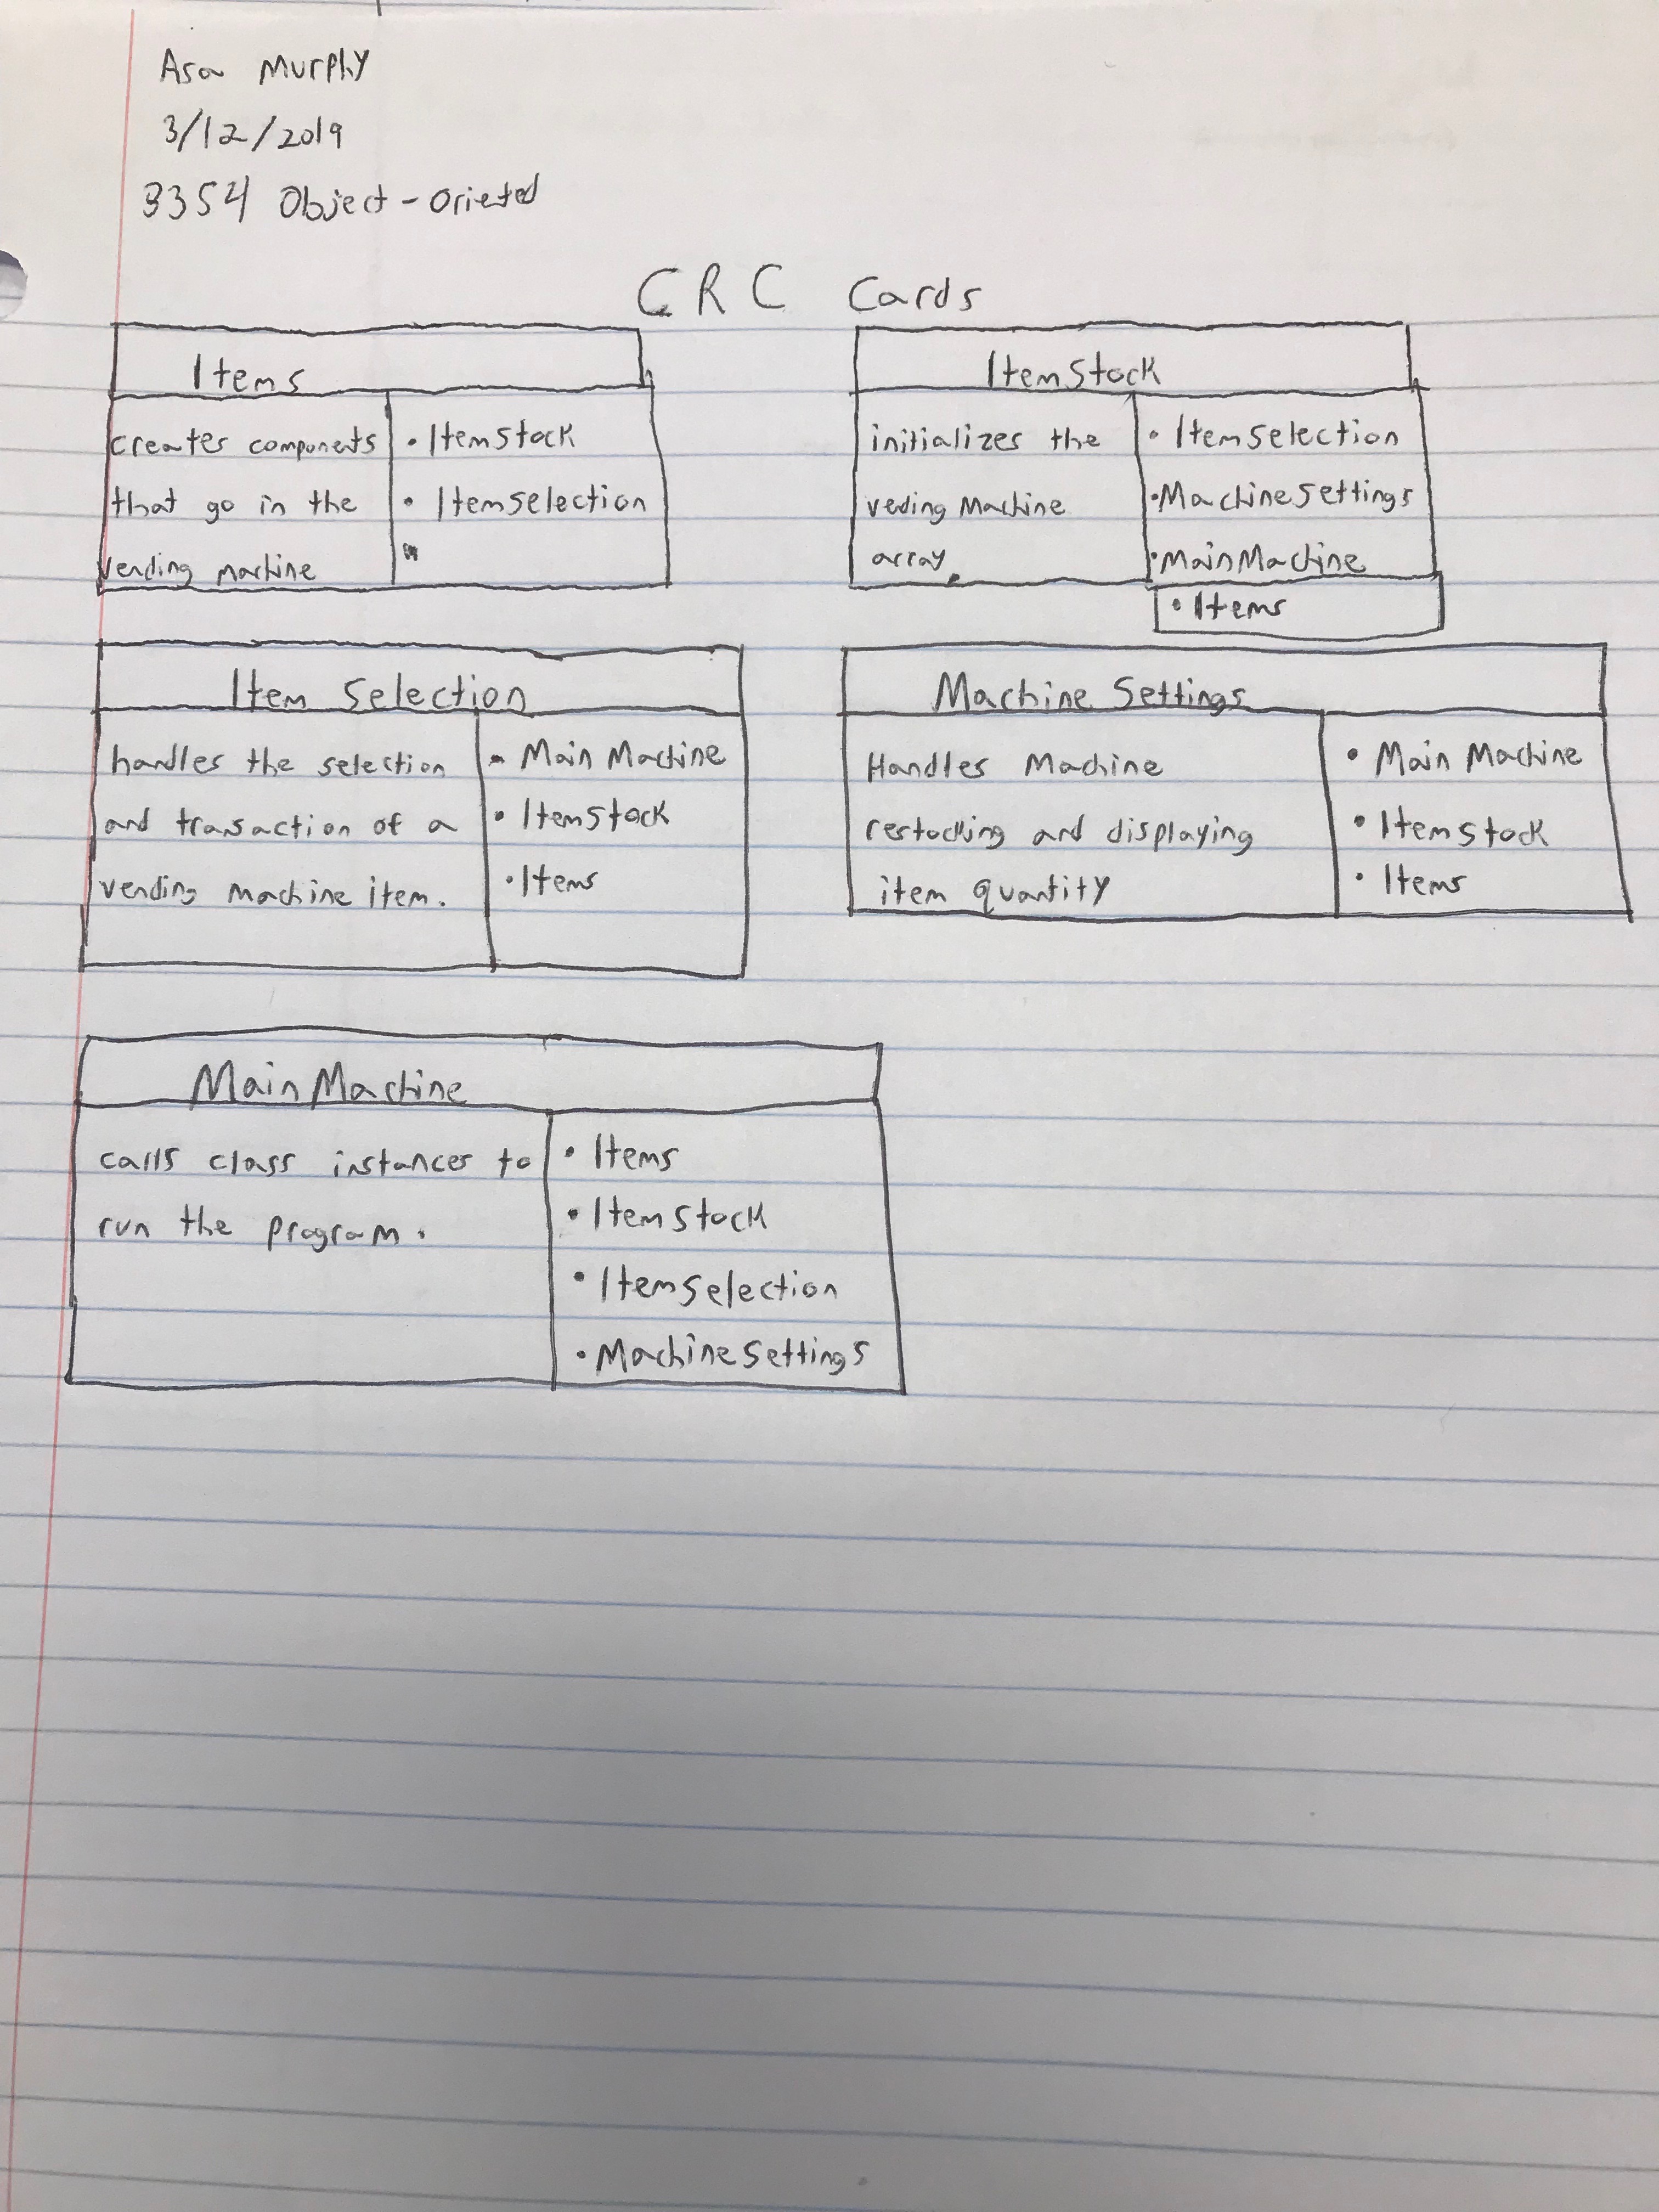 Asa Murphy
3/12/2019
3354 Object-Orieted
CRC Cards
Items
creates components
that go in the
vending machine
• ItemStock
• ItemSelection
ItemStock
initializes the
veding Machine
array.
• ItemSelection
•MachineSettings
•MainMachine
•Items
Item Selection
handles the selection
and trasaction of a
vending machine item.
• Main Machine
• ItemStock
•Items
Machine Settings
Handles Machine
restocking and displaying
item quantity
• Main Machine
• ItemStock
• Items
MainMachine
calls class instances to
run the program.
• Items
• ItemStock
• ItemSelection
• MachineSettings